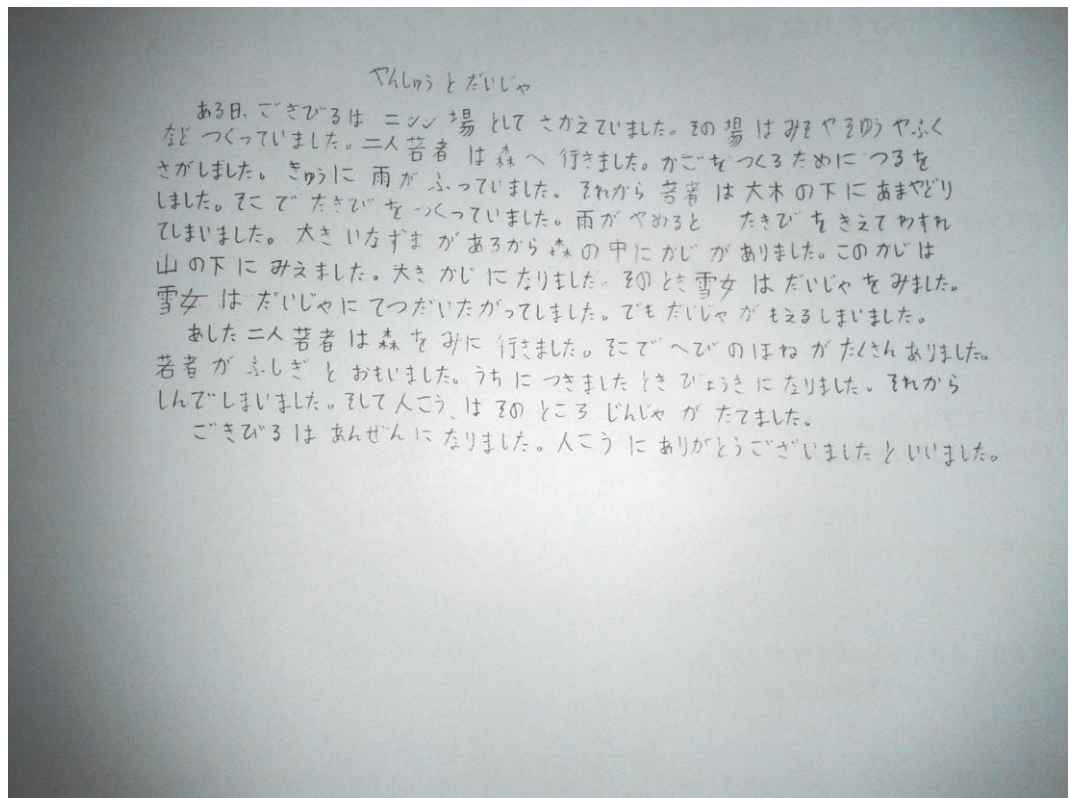 やんしゅう と だいじゃ
ある日、ごきびるは ニシン 場 として さかえていました。その 場 は みそ や そゆう や ふく
など つくっていました。二人 若者 は 森 へ 行きました。かごを つくるために つるを
さがしました。 きゅうに 雨が ふっていました。それから 若者 は 大木 の 下 に あまやどり
しました。そこ で たきび を つくっていました。雨が やめると たきび を きえて わすれ
てしまいました。 大き いなずま が あるから 森 の 中 に かじ が ありました。この かじ は
山 の 下 に みえました。大き かじ に なりました。その とき 雪女 は だいじゃ を みました。
雪女 は だいじゃ に てつだいたがってしました。でも だいじゃ が もえるしまいました。
あした 二人 若者 は 森 を みに 行きました。そこで へび の ほね が たくさん ありました。
若者 が ふしぎ と おもいました。うち に つきました とき びょうき に なりました。それから
しんでしまいました。そして 人こう は その ところ じんじゃ が たてました。
ごきびる は あんぜん に なりました。人こう に ありがとうございました と いいました。